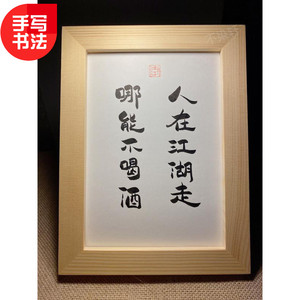 手写
书法
人在江湖走
哪能不喝酒